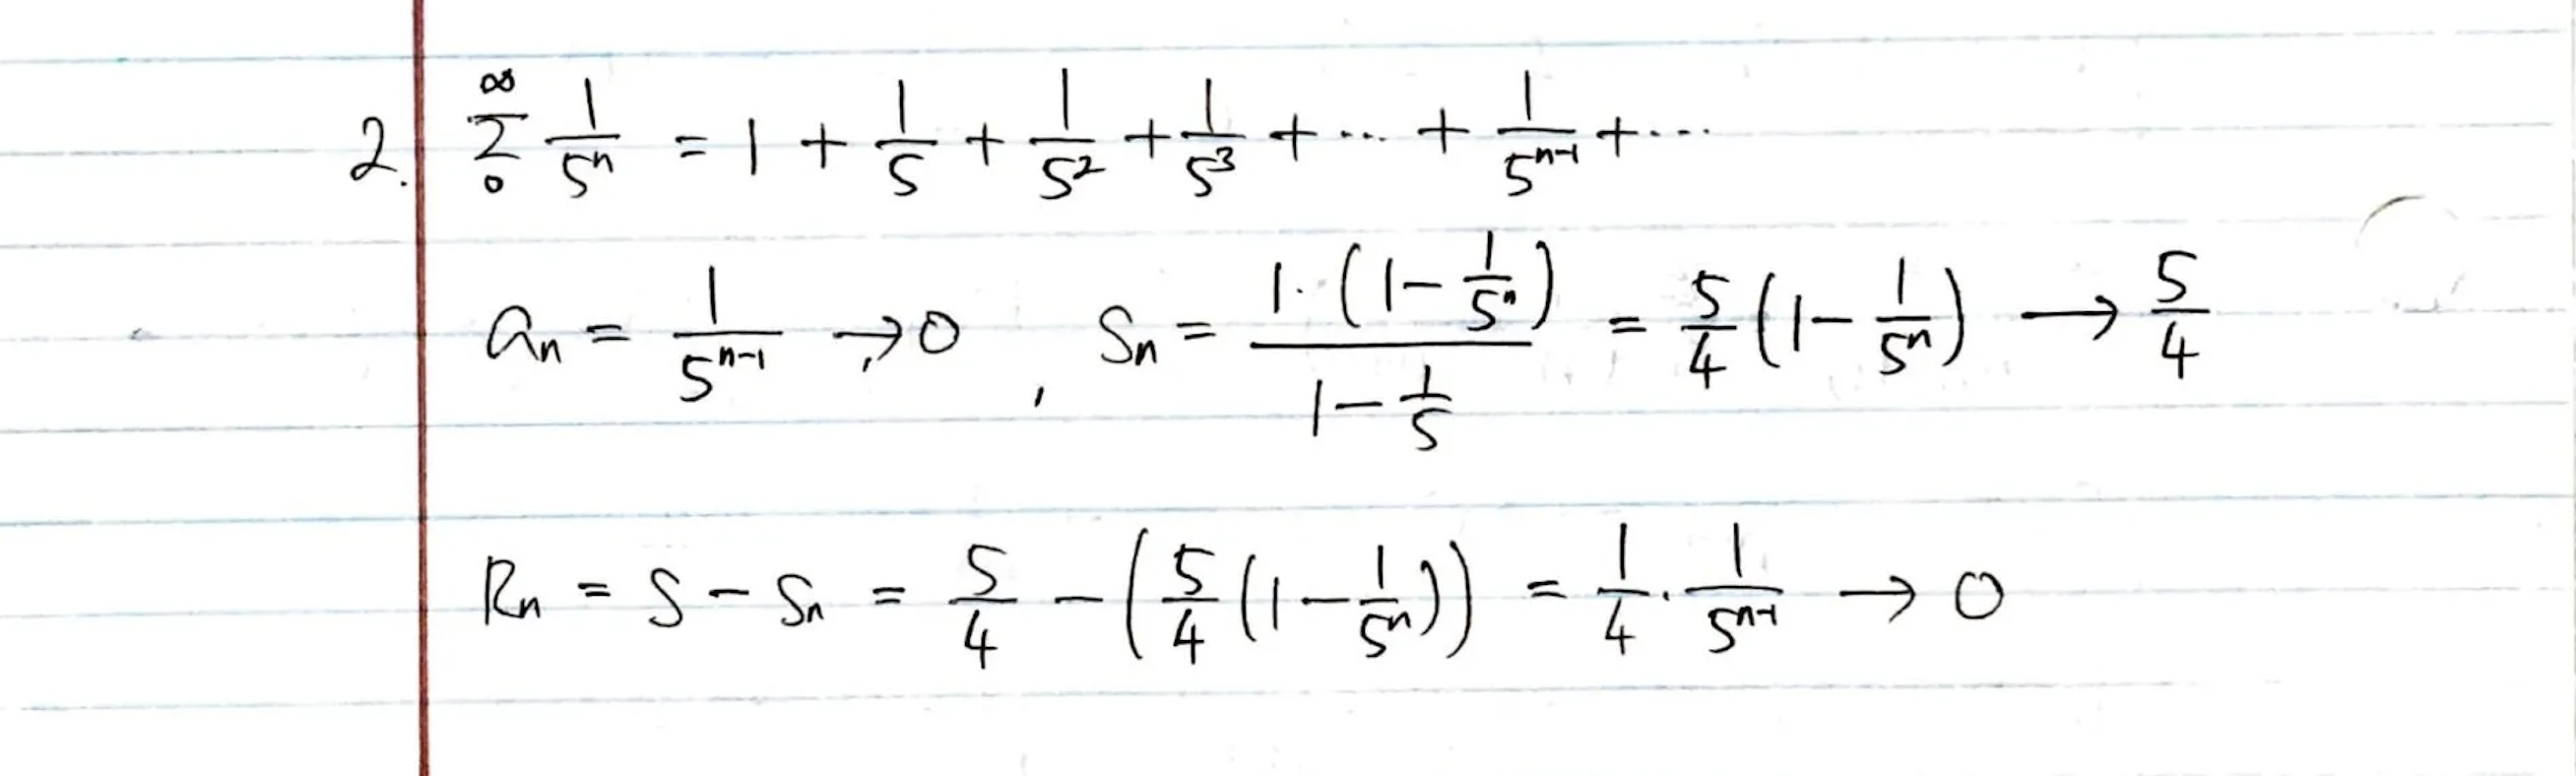 2. ∞Σ0 1/5ⁿ = 1 + 1/5 + 1/5² + 1/5³ + ... + 1/5ⁿ⁻¹ + ...
aₙ = 1/5ⁿ⁻¹ → 0 , Sₙ = 1·(1 - 1/5ⁿ) / (1 - 1/5) = 5/4 (1 - 1/5ⁿ) → 5/4
Rₙ = S - Sₙ = 5/4 - (5/4 (1 - 1/5ⁿ)) = 1/4 · 1/5ⁿ⁻¹ → 0